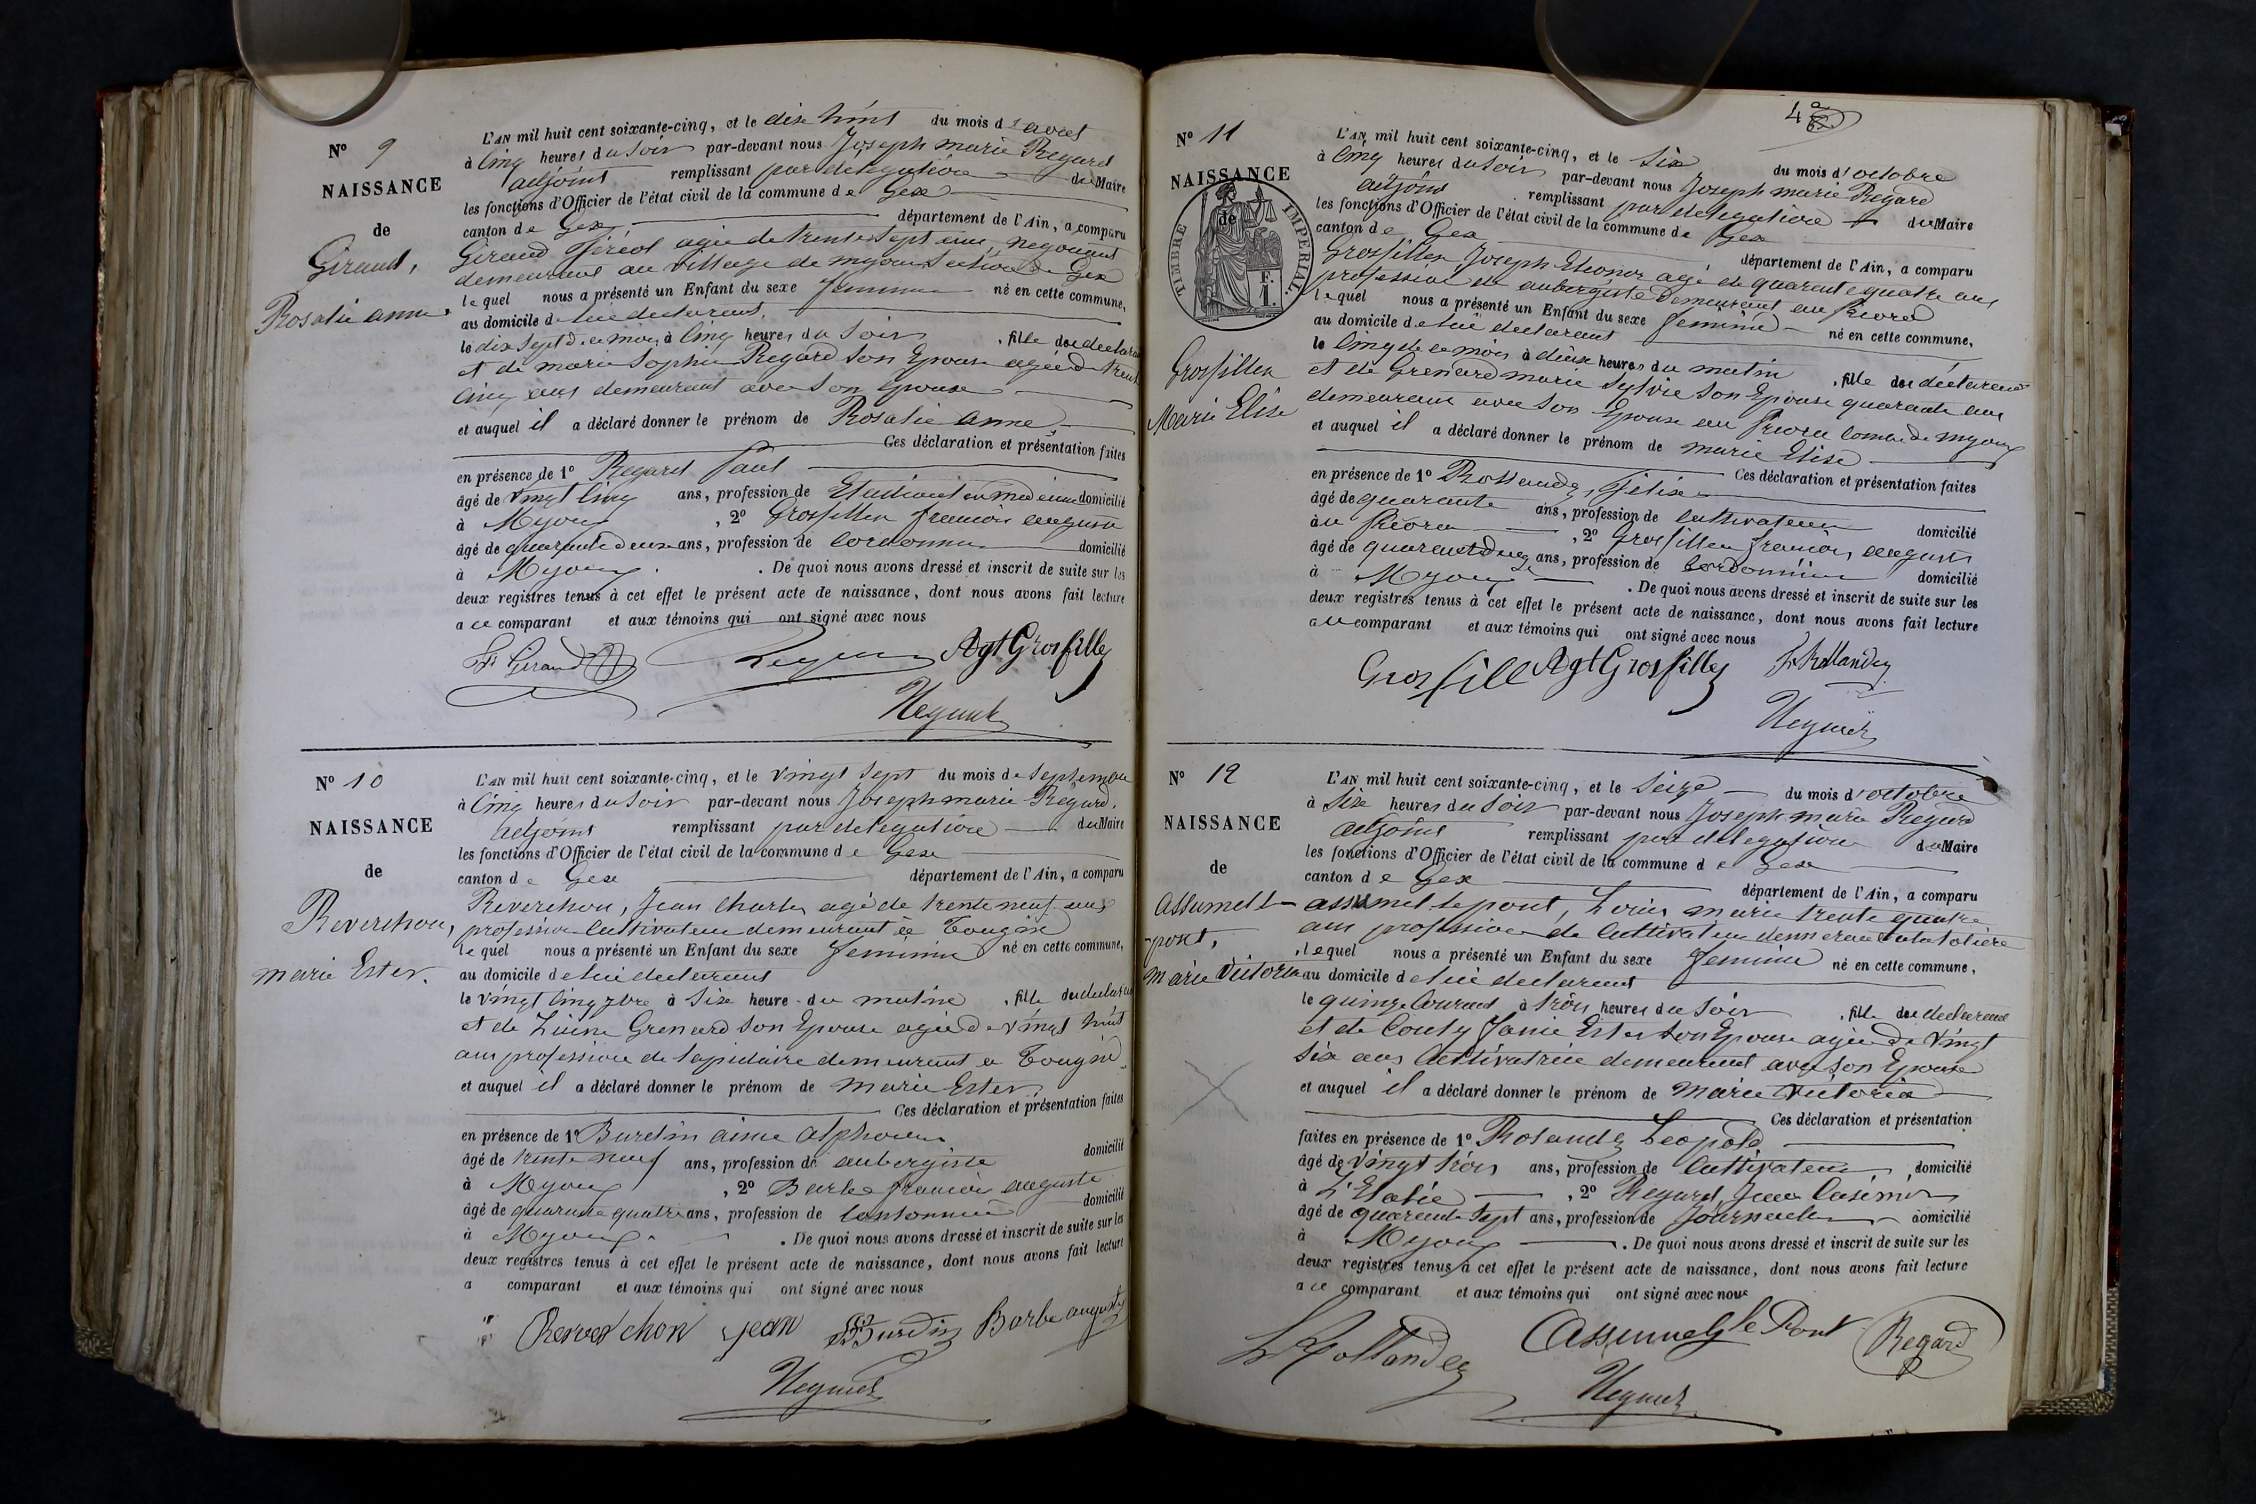 N° 9
NAISSANCE
de
Giraud,
Rosalie anne
L'AN mil huit cent soixante-cinq, et le dix huit du mois d'avril
à cinq heures du soir par-devant nous Joseph marie Regard
adjoint remplissant par délégation du Maire
les fonctions d'Officier de l'état civil de la commune de Gex
canton de Gex département de l'Ain, a comparu
Giraud féréol agée de trente sept ans, negociant
demeurant au village de myoux section de Gex
lequel nous a présenté un Enfant du sexe feminin né en cette commune,
au domicile de lui declarant.
le dix sept de ce mois à cinq heures du soir, fille du declarant
et de marie Sophie Regard son Epouse agée de trente
cinq ans demeurant avec son Epouse
et auquel il a déclaré donner le prénom de Rosalie anne
Ces déclaration et présentation faites
en présence de 1° Regard Paul
âgé de vingt cinq ans, profession de Etudiant en medecine domicilié
à Myoux, 2° Grosfillex francois auguste
âgé de quarante deux ans, profession de cordonnier domicilié
à Myoux. De quoi nous avons dressé et inscrit de suite sur les
deux registres tenus à cet effet le présent acte de naissance, dont nous avons fait lecture
a ce comparant et aux témoins qui ont signé avec nous
Giraud Agt Grosfilley
N° 10
NAISSANCE
de
Reverchon,
marie Ester.
L'AN mil huit cent soixante-cinq, et le vingt sept du mois de septembre
à cinq heures du soir par-devant nous Joseph marie Regard.
adjoint remplissant par delegation du Maire
les fonctions d'Officier de l'état civil de la commune de Gex
canton de Gex département de l'Ain, a comparu
Reverchon, Jean Charles agé de trente neuf ans
profession Cultivateur demeurant à Tougin
lequel nous a présenté un Enfant du sexe feminin né en cette commune,
au domicile de lui declarant
le vingt cinq 7bre à six heure du matin, fille du declarant
et de Grenard son Epouse agée de vingt huit
ans profession de lapidaire demeurant a Tougin
et auquel il a déclaré donner le prénom de marie Ester,
Ces déclaration et présentation faites
en présence de 1° Burdin aimé alphonse
âgé de trente neuf ans, profession de aubergiste domicilié
à Myoux, 2° Barbe francois auguste
âgé de quarante quatre ans, profession de cantonnier domicilié
à Myoux. De quoi nous avons dressé et inscrit de suite sur les
deux registres tenus à cet effet le présent acte de naissance, dont nous avons fait lecture
a comparant et aux témoins qui ont signé avec nous
Reverchon jean Burdin Barbe auguste
N° 11
NAISSANCE
de
TIMBRE IMPÉRIAL.
F.
1.
Grosfillex
Marie Elise
L'AN mil huit cent soixante-cinq, et le six du mois d'octobre
à cinq heures du soir par-devant nous Joseph marie Regard
adjoint remplissant par delegation du Maire
les fonctions d'Officier de l'état civil de la commune de Gex
canton de Gex département de l'Ain, a comparu
Grosfillex Joseph Eleonor agé de quarante quatre ans
profession de aubergiste demeurant au
lequel nous a présenté un Enfant du sexe feminin né en cette commune,
au domicile de lui declarant
le cinq de ce mois à deux heures du matin, fille du déclarant
et de Grenard marie Sylvie son Epouse quarante ans
demeurant avec son Epouse au myoux
et auquel il a déclaré donner le prénom de marie Elise
Ces déclaration et présentation faites
en présence de 1° Rollandez, félix
âgé de quarante ans, profession de cultivateur domicilié
au, 2° Grosfillex francois auguste
âgé de quarante deux ans, profession de cordonnier domicilié
à Myoux. De quoi nous avons dressé et inscrit de suite sur les
deux registres tenus à cet effet le présent acte de naissance, dont nous avons fait lecture
a ce comparant et aux témoins qui ont signé avec nous
Grosfill Agt Grosfilley f Rollandez
N° 12
NAISSANCE
de
assumel le
pont,
marie Victoria
L'AN mil huit cent soixante-cinq, et le seize du mois d'octobre
à six heures du soir par-devant nous Joseph marie Regard
adjoint remplissant par delegation du Maire
les fonctions d'Officier de l'état civil de la commune de Gex
canton de Gex département de l'Ain, a comparu
assumel le pont, Louis marie trente quatre
ans profession de cultivateur demeurant
lequel nous a présenté un Enfant du sexe feminin né en cette commune,
au domicile de lui declarant
le quinze courant à trois heures du soir, fille du declarant
et de Ester son Epouse agée de vingt
six ans cultivatrice demeurant avec son Epouse
et auquel il a déclaré donner le prénom de marie Victoria
Ces déclaration et présentation
faites en présence de 1° Rolandez Leopold
âgé de vingt trois ans, profession de cultivateur domicilié
à, 2° Regard, Jean Casimir
âgé de quarante sept ans, profession de journalier domicilié
à Myoux. De quoi nous avons dressé et inscrit de suite sur les
deux registres tenus à cet effet le présent acte de naissance, dont nous avons fait lecture
a ce comparant et aux témoins qui ont signé avec nous
L Rollandez Assumel le Pont Regard